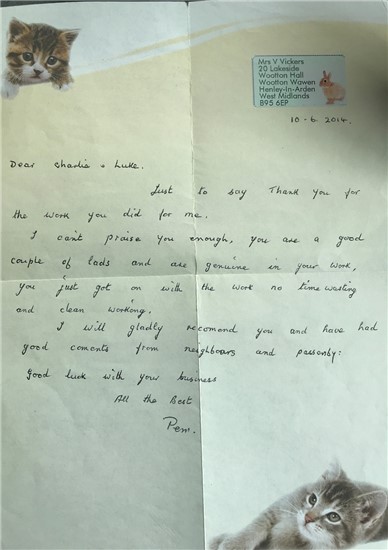 Mrs V Vickers
20 Lakeside
Wootton Hall
Wootton Wawen
Henley-in-Arden
West Midlands
B95 6EP
10-6. 2014.
Dear Charlie + Luke.
Just to say Thank you for
the work you did for me.
I can't praise you enough, you are a good
couple of lads and are genuine in your work,
you just got on with the work no time wasting
and clean working.
I will gladly recomond you and have had
good coments from neighbours and passerby:
Good luck with your business
All the Best
Pem.